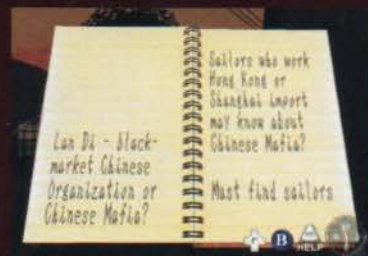 Lan Di - black-
market Chinese
Organization or
Chinese Mafia?
Sailors who work
Hong Kong or
Shanghai import
may know about
Chinese Mafia?
Must find sailors
B
HELP